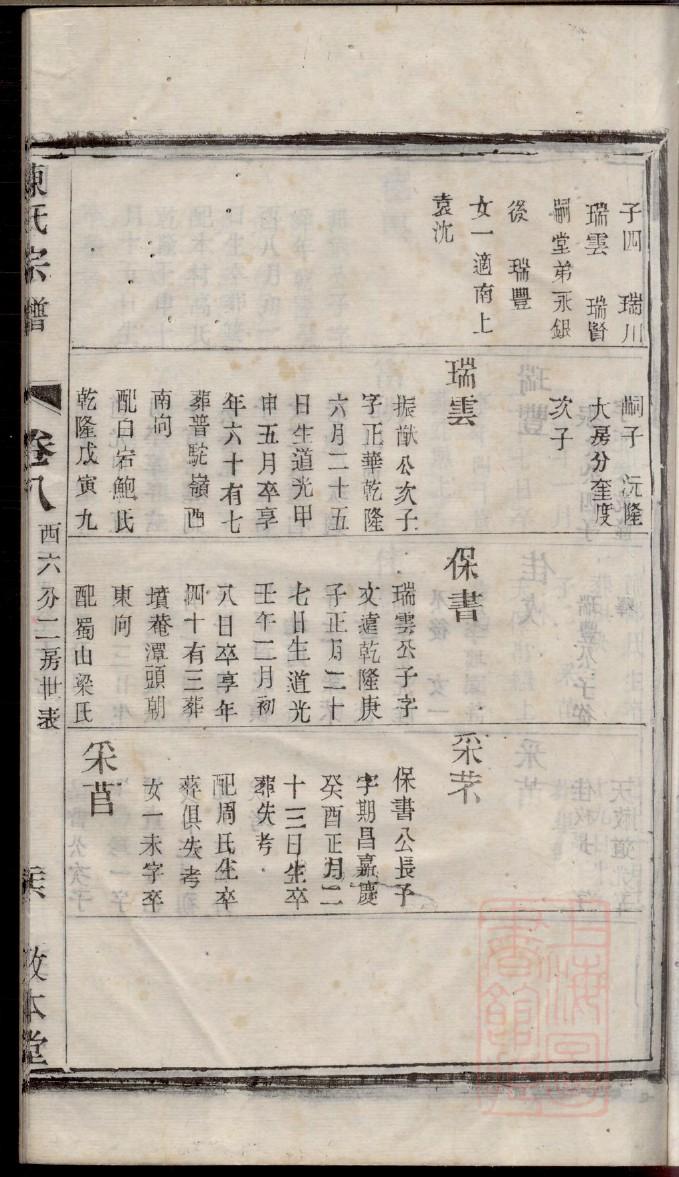 子四　瑞川
瑞雲　瑞賢
嗣堂弟永銀
後　瑞豐
女一適南上
袁沈
嗣子　沅隆
大房分奎度
次子
瑞雲
振猷公次子
字正華乾隆
六月二十五
日生道光甲
申五月卒享
年六十有七
葬普駝嶺酉
南向
配白宕鮑氏
乾隆戊寅九
保書
瑞雲公子字
文遠乾隆庚
子正月三十
七日生道光
壬午二月初
八日卒享年
四十有三葬
墳菴潭頭朝
東向
配蜀山梁氏
采芣
保書公長子
字期昌嘉慶
癸酉正月二
十三日生卒
葬失考
配周氏生卒
葬俱失考
女一未字卒
采苢
陳氏宗譜
卷八
西六分二房世表
敦本堂